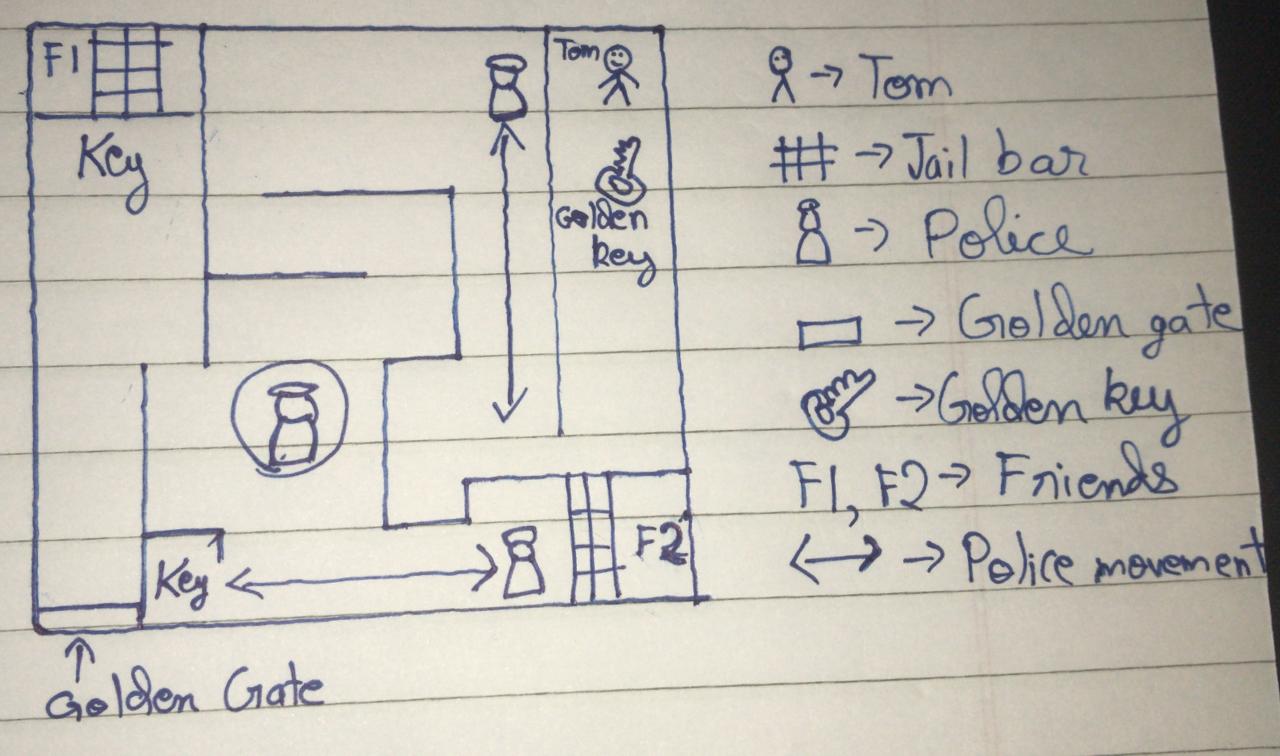 F1
Key
Tom
Golden
key
F2
Key
Golden Gate
→ Tom
→ Jail bar
→ Police
→ Golden gate
→ Golden key
F1, F2 → Friends
→ Police movement